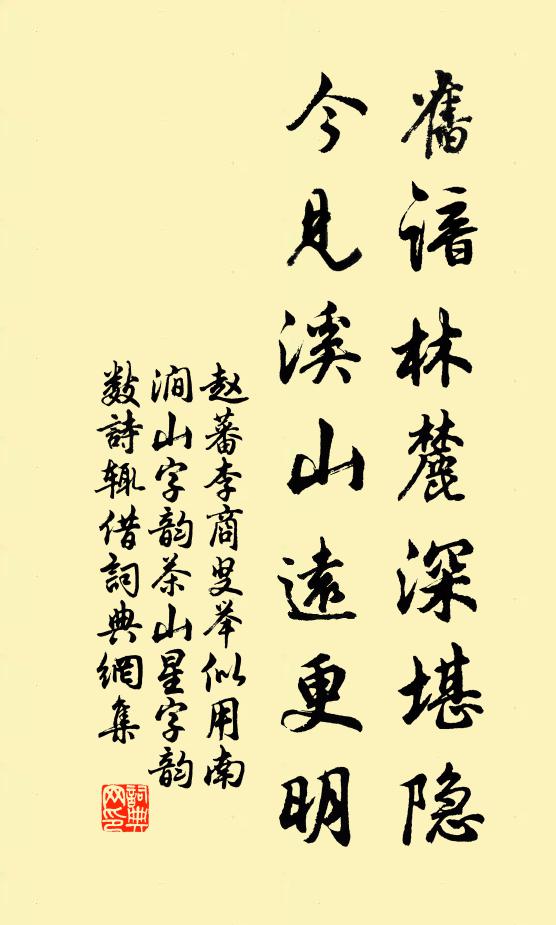 舊谙林麓深堪隐
今見溪山遠更明
赵蕃李商叟举似用南
涧山字韵茶山星字韵
数詩辄借詞典網集
詞典网印